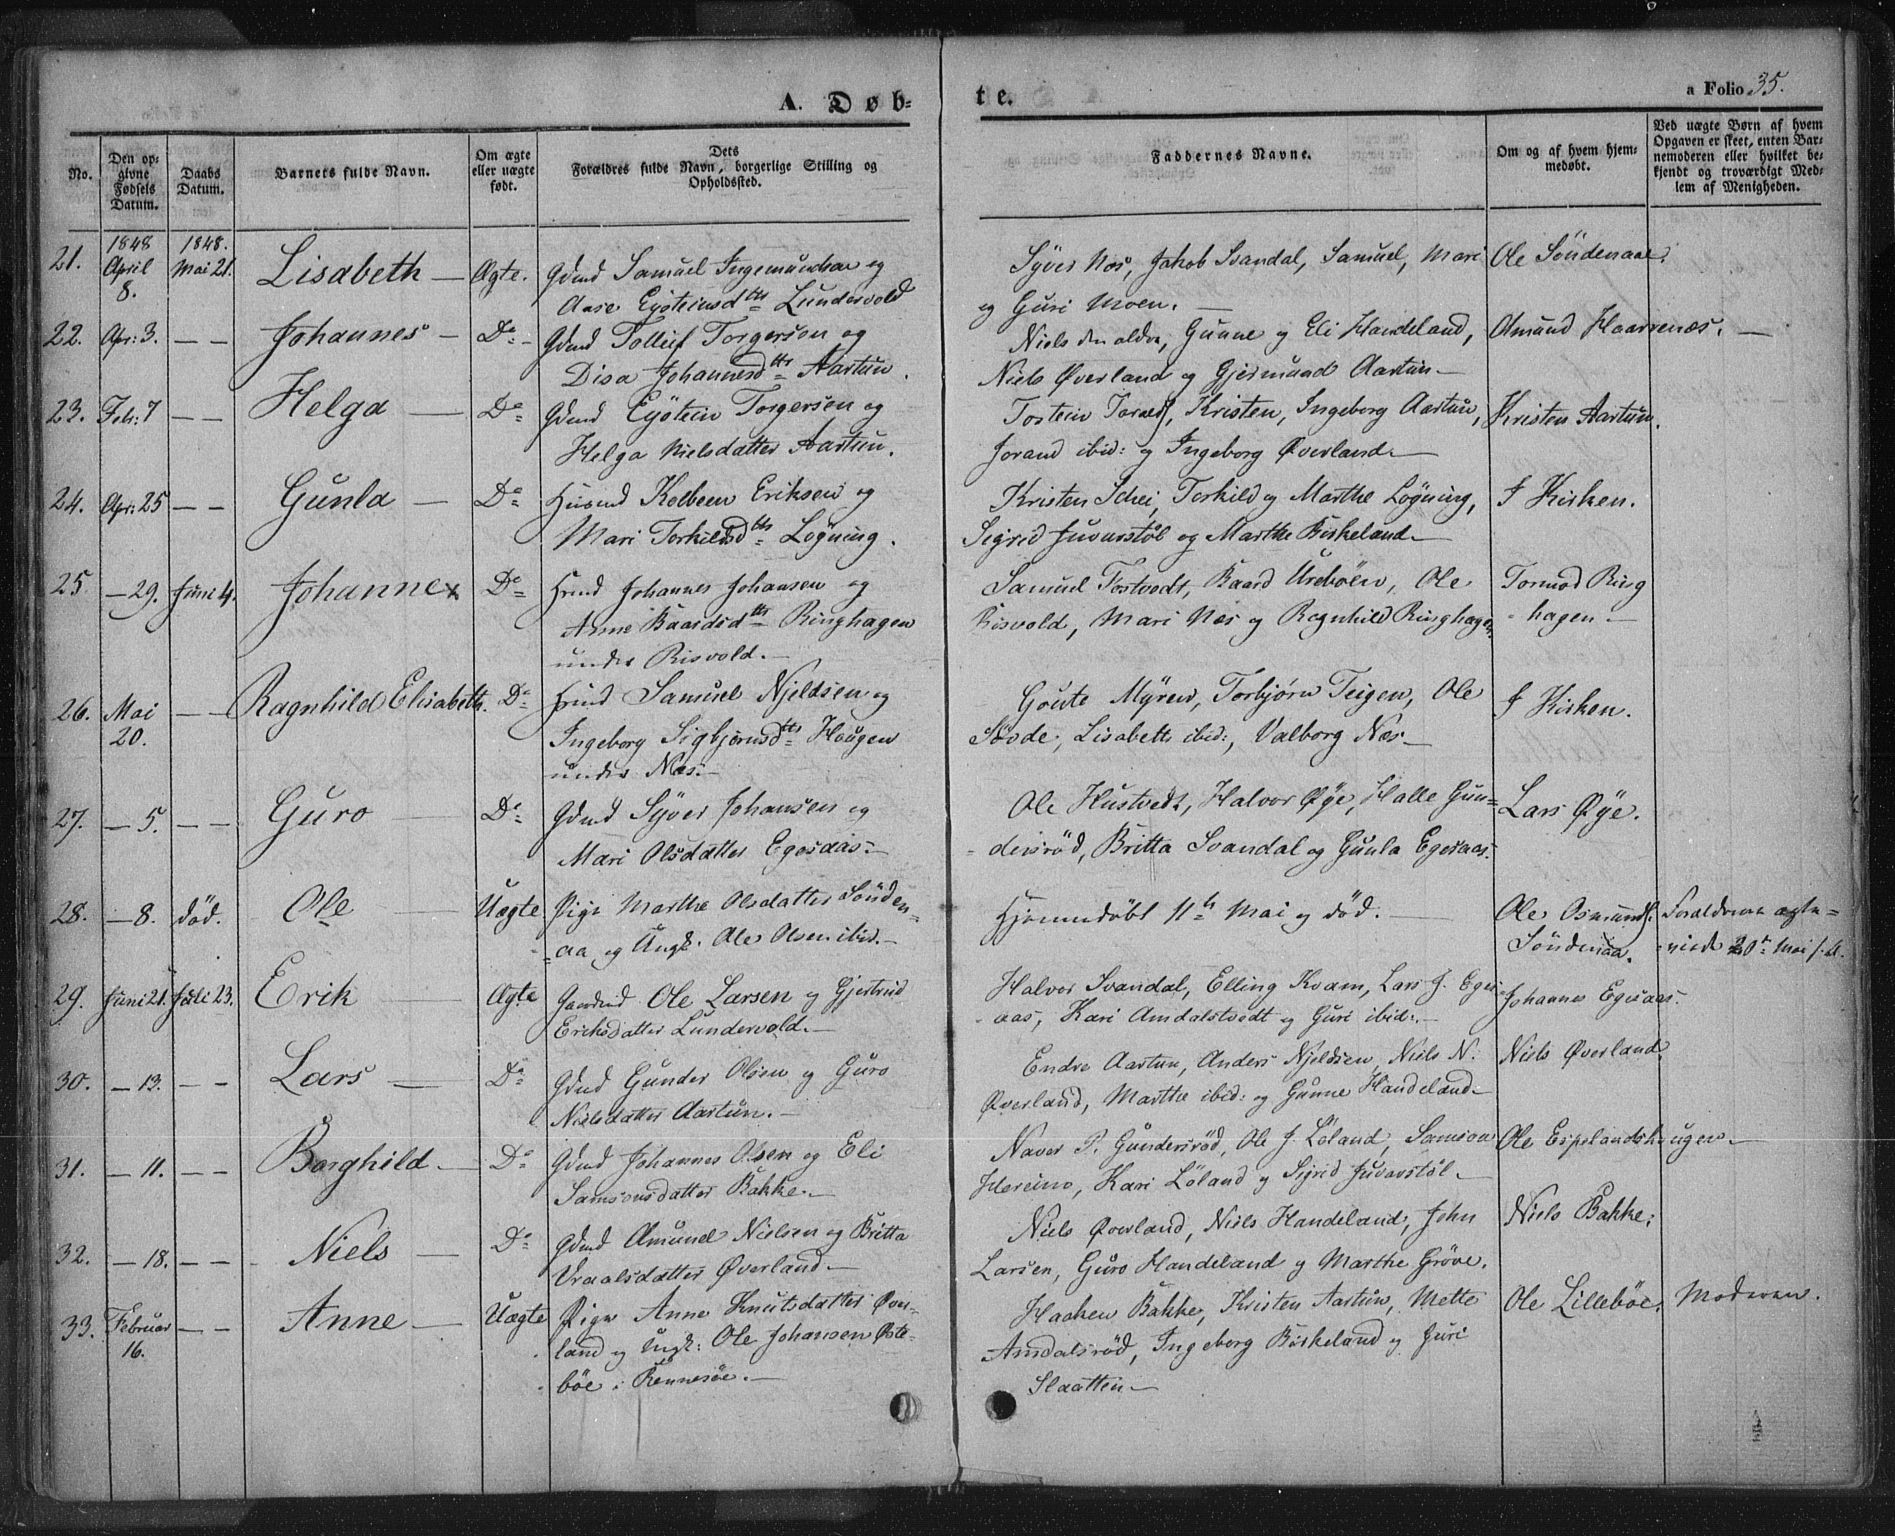 A. Døbte.
a Folio 35.
No. | Den opgivne Fødsels Datum. | Daabs Datum. | Barnets fulde Navn. | Om ægte eller uægte født. | Dets Forældres fulde Navn, borgerlige Stilling og Opholdssted. | Faddernes Navne. | Om og af hvem hjemmedøbt. | Ved uægte Børn af hvem Opgaven er skeet, enten Barnemoderen eller hvilket bekjendt og troværdigt Medlem af Menigheden.
21. 1848 April 8. 1848. Mai 21. Lisabeth — Ægte. Gdmd Samuel Ingemundsen og
Aase Eysteinsdtr Lundervold
Syver Nos, Jakob Svandal, Samuel, Mari
og Guri Moen. —
Ole Söndenaae.
22. Apr: 3. — — Johannes — Do — Gdmd Tollief Torgersen og
Disa Johannesdtr Aartun.
Niels den ældre, Gunne og Eli Handeland,
Niels Øverland og Gjermund Aartun —
Amund Haavenæs. —
23. Febr: 7 — — Helga — Do Gdmd Eystein Torgersen og
Helga Nielsdatter Aartun.
Tostein, Kristen, Ingeborg Aartun,
Jorand ibid: og Ingeborg Øverland —
Kristen Aartun.
24. Apr: 25 — — Gunla — Do Husmd Kolbeen Eriksen og
Mari Torkildsdtr Løgning.
Kristen Schei, Torkild og Marthe Løgning,
Sigrid Juvarstøl og Marthe Birkeland —
I Kirken.
25. — 29. Juni 4. Johanne x Do Hmd Johannes Johansen og
Anne Baardsdtr Ringhagen
under Risvold. —
Samuel Tostvedt, Baard Urebøen, Ole
Risvold, Mari Nos og Ragnhild Ringhagen
Tormod Ring
hagen —
26. Mai 20. — — Ragnhild Elisabeth. Do Hmd Samuel Njeldsen og
Ingeborg Sigbjørnsdtr Haugen
under Næs. —
Goute Myren, Torbjørn Teigen, Ole
Søvde, Lisabeth ibid:, Valborg Næs —
I Kirken.
27. — 5. — — Guro — Do Gdmd Syver Johansen og
Mari Olsdatter Egesaas —
Ole Hustvedt, Halvor Øye, Halle Gun=
dersrød, Britta Svandal og Gunla Egesaas.
Lars Øye.
28. — 8. død. Ole — Uægte Pige Marthe Olsdatter Sönden=
aa og Ungk. Ole Olsen ibid. —
Hjemmedøbt 11te Mai og død. —
Ole Osmunds.
Söndenaa.
Forældrene ægte=
viede 20de Mai
29. Juni 21. Juli 23. Erik — Ægte Gaardmd Ole Larsen og Gjertrud
Ericksdatter Lundervold. —
Halvor Svandal, Elling Kvam, Lars J. Eges
aas, Kari Amdalstvedt og Guri ibid: —
Johannes Egesaas —
30. — 13. — — Lars — Do Gdmd Gunder Olsen og Guro
Nielsdatter Aartun. —
Endre Aartun, Anders Njeldsen, Niels N.
Øverland, Marthe ibid: og Gunne Handeland —
Niels Øverland
31. — 11. — — Borghild — Do Gdmd Johannes Olsen og Eli
Samsonsdatter Bakke. —
Naver P. Gundersrød, Ole J. Løland, Samson
Hereims, Kari Løland og Sigrid Juvarstøl —
Ole Espelandshaugen —
32. — 18. — — Niels — Do Gdmd Amund Nielsen og Britta
Vraalsdatter Øverland —
Niels Øverland, Niels Handeland, John
Larsen, Guro Handeland og Marthe Grøve.
Niels Bakke.
33. Februar 16. — — Anne — Uægte Pige Anne Knutsdatter Øver=
land og Ungk: Ole Johansen Øste=
bøe i Rennesøe. —
Haaken Bakke, Kristen Aartun, Mette
Amdalsrød, Ingeborg Birkeland og Guri
Slaatten —
Ole Lillebøe. Moderen.